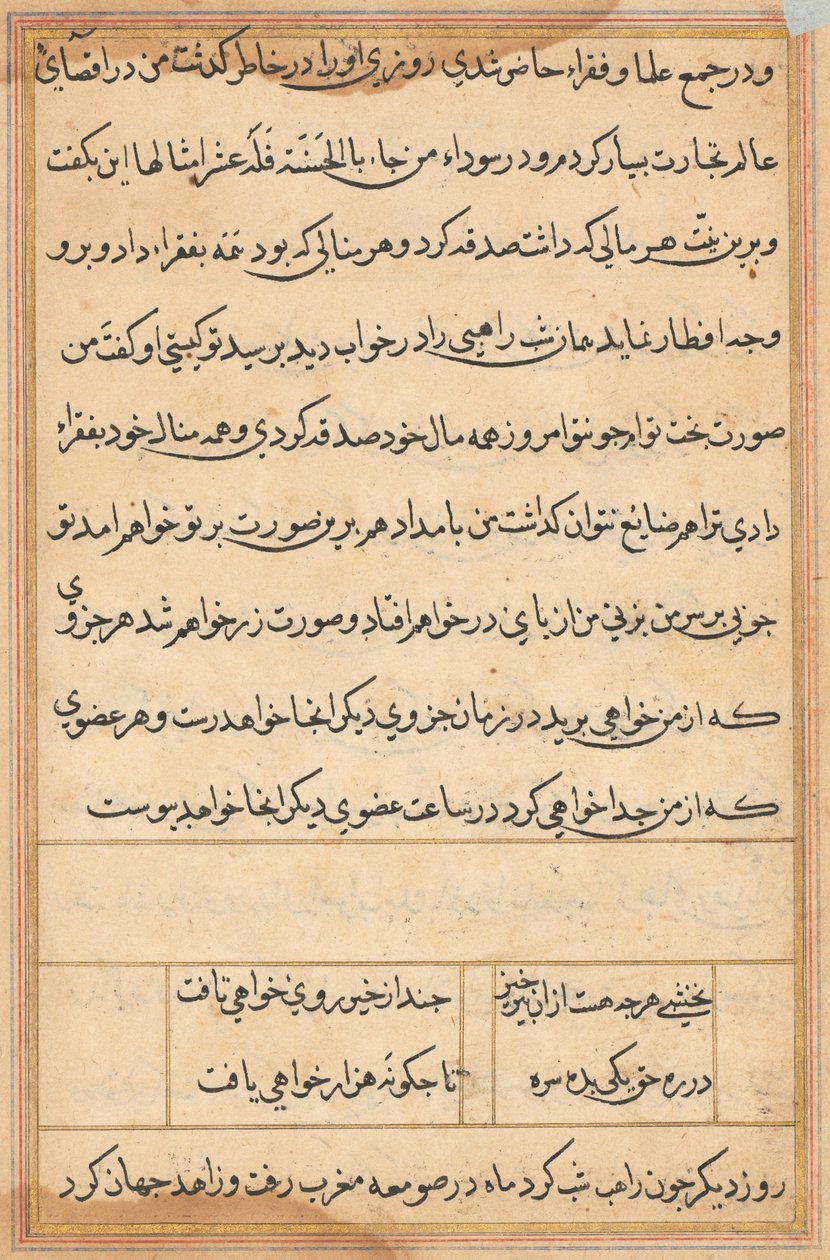 و در جمع علما و فقراء حاضر شدي روزي او را در خاطر كذشت من در اقصآي
عالم تجارت بسيار كردم و در سوداء من جاء بالحَسَنَة فَلَهُ عشر امثالها اين بكفت
و برين نيّت هر مالي كه داشت صدقه كرد و هر منالي كه بود همَه بفقراء داد و برو
وجه افطار نماند همان شب راهبي را در خواب ديد برسيد تو كيستي او كفت من
صورت بخت توام جون تو امروز همه مال خود صدقه كردي و همه منال خود بفقراء
دادي ترا هم ضايع نتوان كذاشت من بامداد هم برين صورت بر تو خواهم امد تو
جوبي بر سر من بزني من از باي در خواهم افتاد و صورت زر خواهم شد هر جزوي
كه از من خواهي بريد در زمان جزوي ديكر انجا خواهد رست و هر عضوي
كه از من جدا خواهي كرد در ساعت عضوي ديكر انجا خواهد بيوست
نخشبي هرجه هست ازان برخيز
جند از خير روي خواهي تافت
در ره حق يكي بده سره
تا جكونَه هزار خواهي يافت
روز ديكر جون راهب شب كرد ماه در صومعه مغرب رفت و زاهد جهان كرد